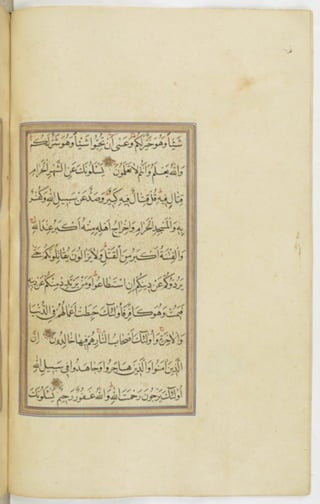 شَيْئًا وَهُوَ خَيْرٌ لَكُمْ وَعَسَى أَنْ تُحِبُّوا شَيْئًا وَهُوَ شَرٌّ لَكُمْ
وَاللَّهُ يَعْلَمُ وَأَنْتُمْ لَا تَعْلَمُونَ يَسْئَلُونَكَ عَنِ الشَّهْرِ الْحَرَامِ
قِتَالٍ فِيهِ قُلْ قِتَالٌ فِيهِ كَبِيرٌ وَصَدٌّ عَنْ سَبِيلِ اللَّهِ وَكُفْرٌ
بِهِ وَالْمَسْجِدِ الْحَرَامِ وَإِخْرَاجُ أَهْلِهِ مِنْهُ أَكْبَرُ عِنْدَ اللَّهِ
وَالْفِتْنَةُ أَكْبَرُ مِنَ الْقَتْلِ وَلَا يَزَالُونَ يُقَاتِلُونَكُمْ حَتَّى
يَرُدُّوكُمْ عَنْ دِينِكُمْ إِنِ اسْتَطَاعُوا وَمَنْ يَرْتَدِدْ مِنْكُمْ عَنْ دِينِهِ
فَيَمُتْ وَهُوَ كَافِرٌ فَأُولَئِكَ حَبِطَتْ أَعْمَالُهُمْ فِي الدُّنْيَا
وَالْآخِرَةِ وَأُولَئِكَ أَصْحَابُ النَّارِ هُمْ فِيهَا خَالِدُونَ إِنَّ
الَّذِينَ آمَنُوا وَالَّذِينَ هَاجَرُوا وَجَاهَدُوا فِي سَبِيلِ اللَّهِ
أُولَئِكَ يَرْجُونَ رَحْمَتَ اللَّهِ وَاللَّهُ غَفُورٌ رَحِيمٌ يَسْئَلُونَكَ